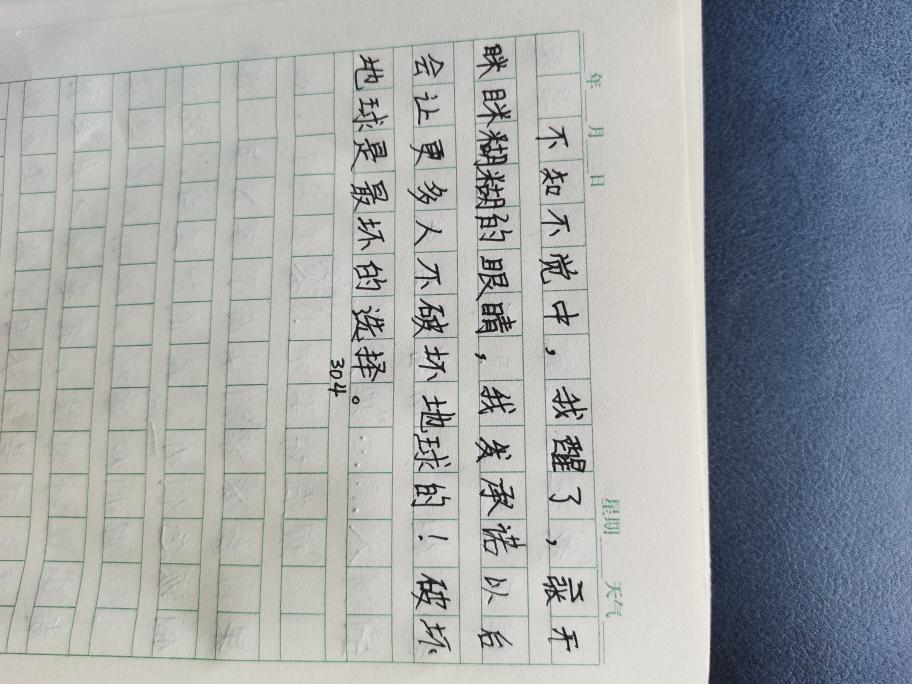 年 月 日 星期 天气
不知不觉中，我醒了，张开
眯眯糊糊的眼睛，我发承诺以后
会让更多人不破坏地球的！破坏
地球是最坏的选择。
304